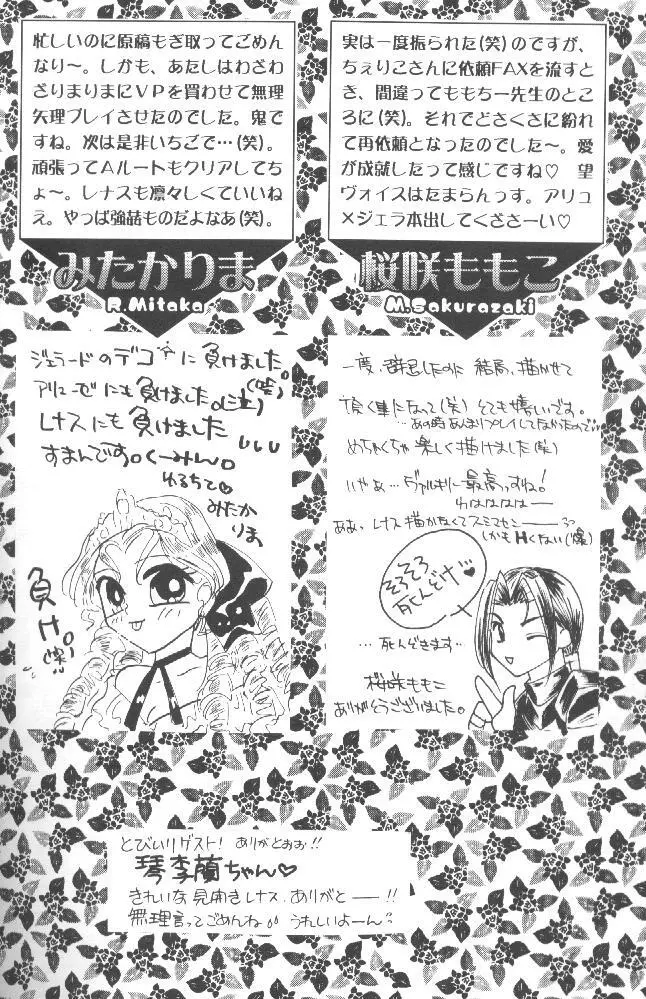 忙しいのに原稿もぎ取ってごめん
なり〜。しかも、あたしはわざわ
ざまりまにVPを買わせて無理
矢理プレイさせたのでした。鬼で
すね。次は是非いちごで…(笑)。
頑張ってAルートもクリアしてち
ょ〜。レナスも凛々しくていいね
ぇ。やっぱ強喆ものだよなあ(笑)。
みたかりま
R.Mitaka
ジェラードのデコに負けました。
アリューゼにも負けました。(泣)
レナスにも負けました
すまんです。くーみん。
ゆるちて♡
みたか
りま
負け。
(爆)
実は一度振られた(笑)のですが、
ちぇりこさんに依頼FAXを流すと
き、間違ってももちー先生のとこ
ろに(笑)。それでどさくさに紛れ
て再依頼となったのでした〜。愛
が成就したって感じですね♡ 望
ヴォイスはたまらんっす。アリュ
×ジェラ本出してくださーい♡
桜咲ももこ
M.Sakurazaki
一度、辞退したのに 結局、描かせて
頂く事になって(笑) とても嬉しいです。
…あの時あんまりプレイしてなかったので…
めちゃくちゃ楽しく描けました(笑)
いやぁ…ヴァルキリに最高っすね!
わはははは―
ああ、レナス描かなくてスミマセン――
しかもHくない(爆)
そろそろ
死んどけ♥
…死んどきます…
桜咲ももこ
ありがとうございました。
とびいりゲスト! ありがとおお!!
琴李蘭ちゃん♡
きれいな見開きレナス、ありがと――!!
無理言ってごめんね うれしいよーん